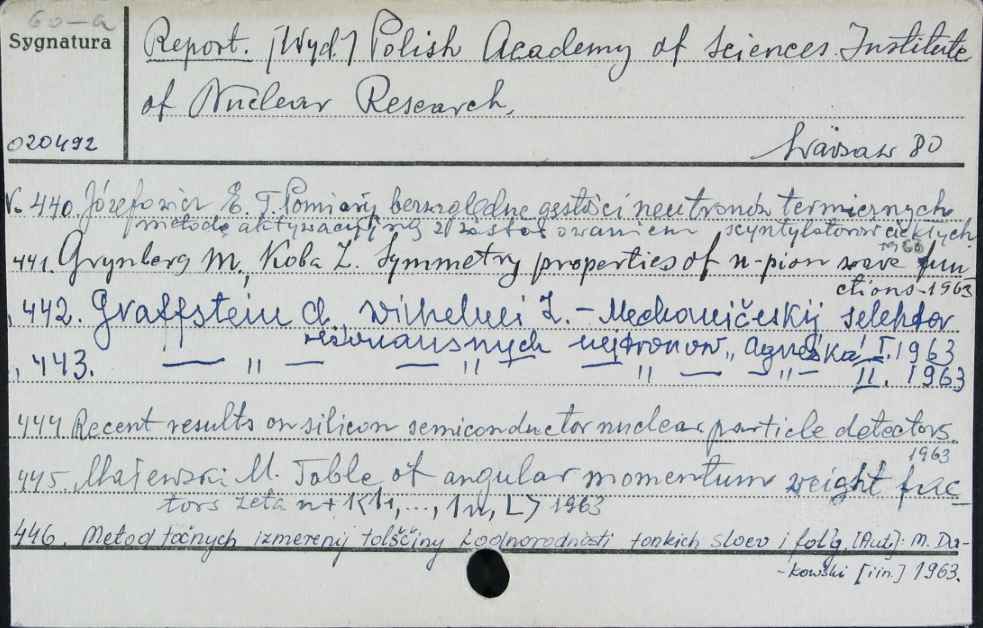 60-a
Sygnatura
Report. [Wyd.] Polish Academy of Sciences. Institute
of Nuclear Research,
020492
Warsaw 80
No 440. Józefowicz E. T. Pomiary bezwzględne gęstości neutronów termicznych
metodą aktywacyjną z zastosowaniem scyntylatorów ciekłych
1963
441. Grynberg M., Koba Z. Symmetry properties of n-pion wave fun
ctions - 1963
442. Graffstein A. Wilhelmi Z. - Mechaničeskij selektor
rezonansnych nejtronov "Agneška" I. 1963
443. — " — — " — " — " — II. 1963
444 Recent results on silicon semiconductor nuclear particle detectors.
1963
445. Majewski M. Table of angular momentum weight fac
tors zeta n+1<l1,..., ln, L> 1963
446. Metod točnych izmerenij tolščiny i odnorodnosti tonkich sloev i folg. [Aut]: M. Da-
-kowski [i in.] 1963.